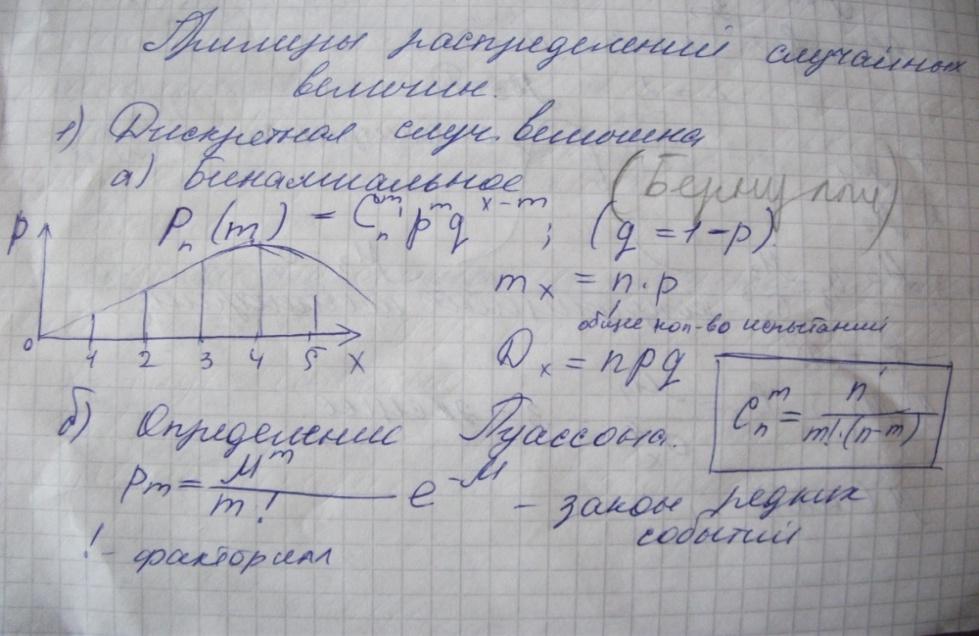 Примеры распределений случайных
величин.
1) Дискретная случ. величина
а) Биномиальное (Бернулли)
P_n(m) = C_n^m p^m q^{x-m} ; (q = 1-p)
p
0 1 2 3 4 5 x
m_x = n·p
общее кол-во испытаний
D_x = npq
C_n^m = n! / m!·(n-m)
б) Определение Пуассона.
P_m = M^m / m! e^{-M} - закон редких
событий
! - факториал